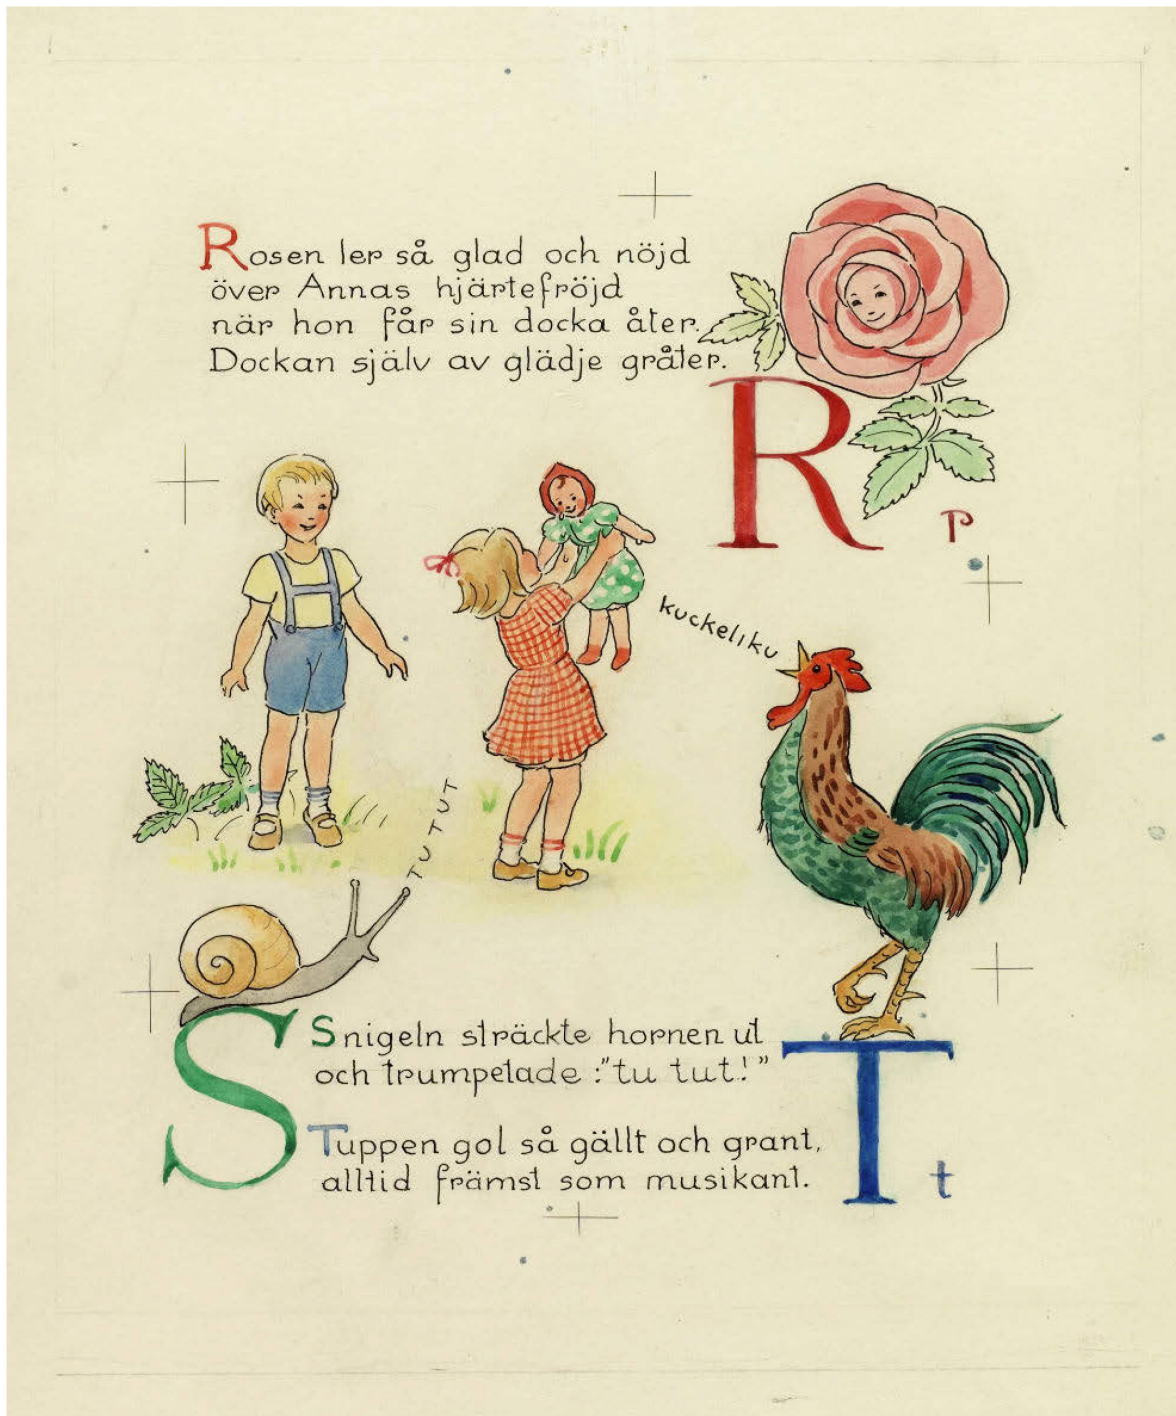 Rosen ler så glad och nöjd
över Annas hjärtefröjd
när hon får sin docka åter.
Dockan själv av glädje gråter.
R
r
kuckeliku
TU TUT
S
Snigeln sträckte hornen ut
och trumpetade :"tu tut!"
Tuppen gol så gällt och grant,
alltid främst som musikant.
T
t